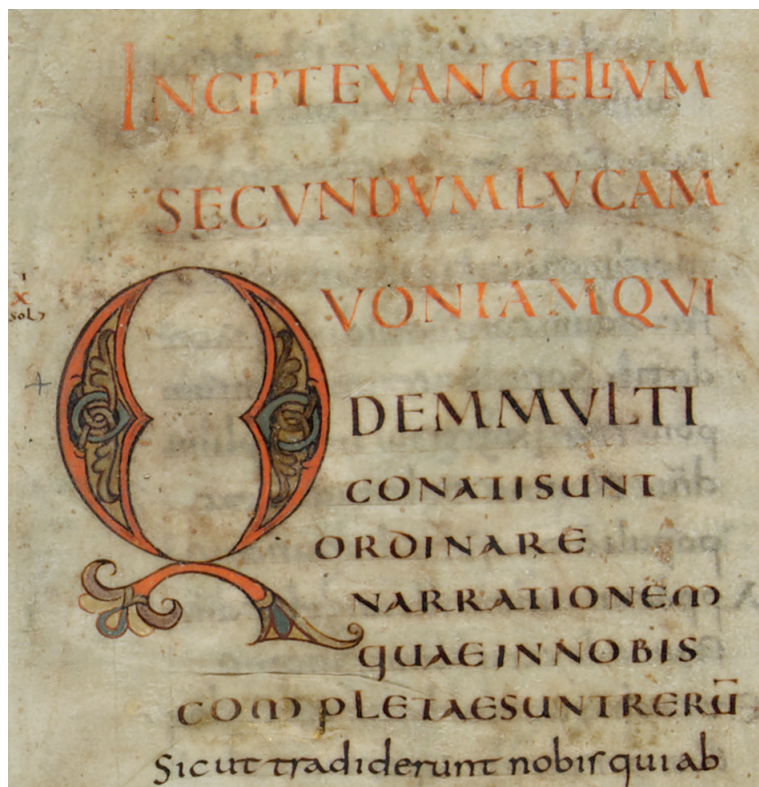 INCP̄T EVANGELIUM
SECVNDVM LVCAM
QVONIAM QVI
DEM MVLTI
CONATI SUNT
ORDINARE
NARRATIONEM
QUAE IN NOBIS
COMPLETAE SUNT RERŪ
Sicut tradiderunt nobis qui ab